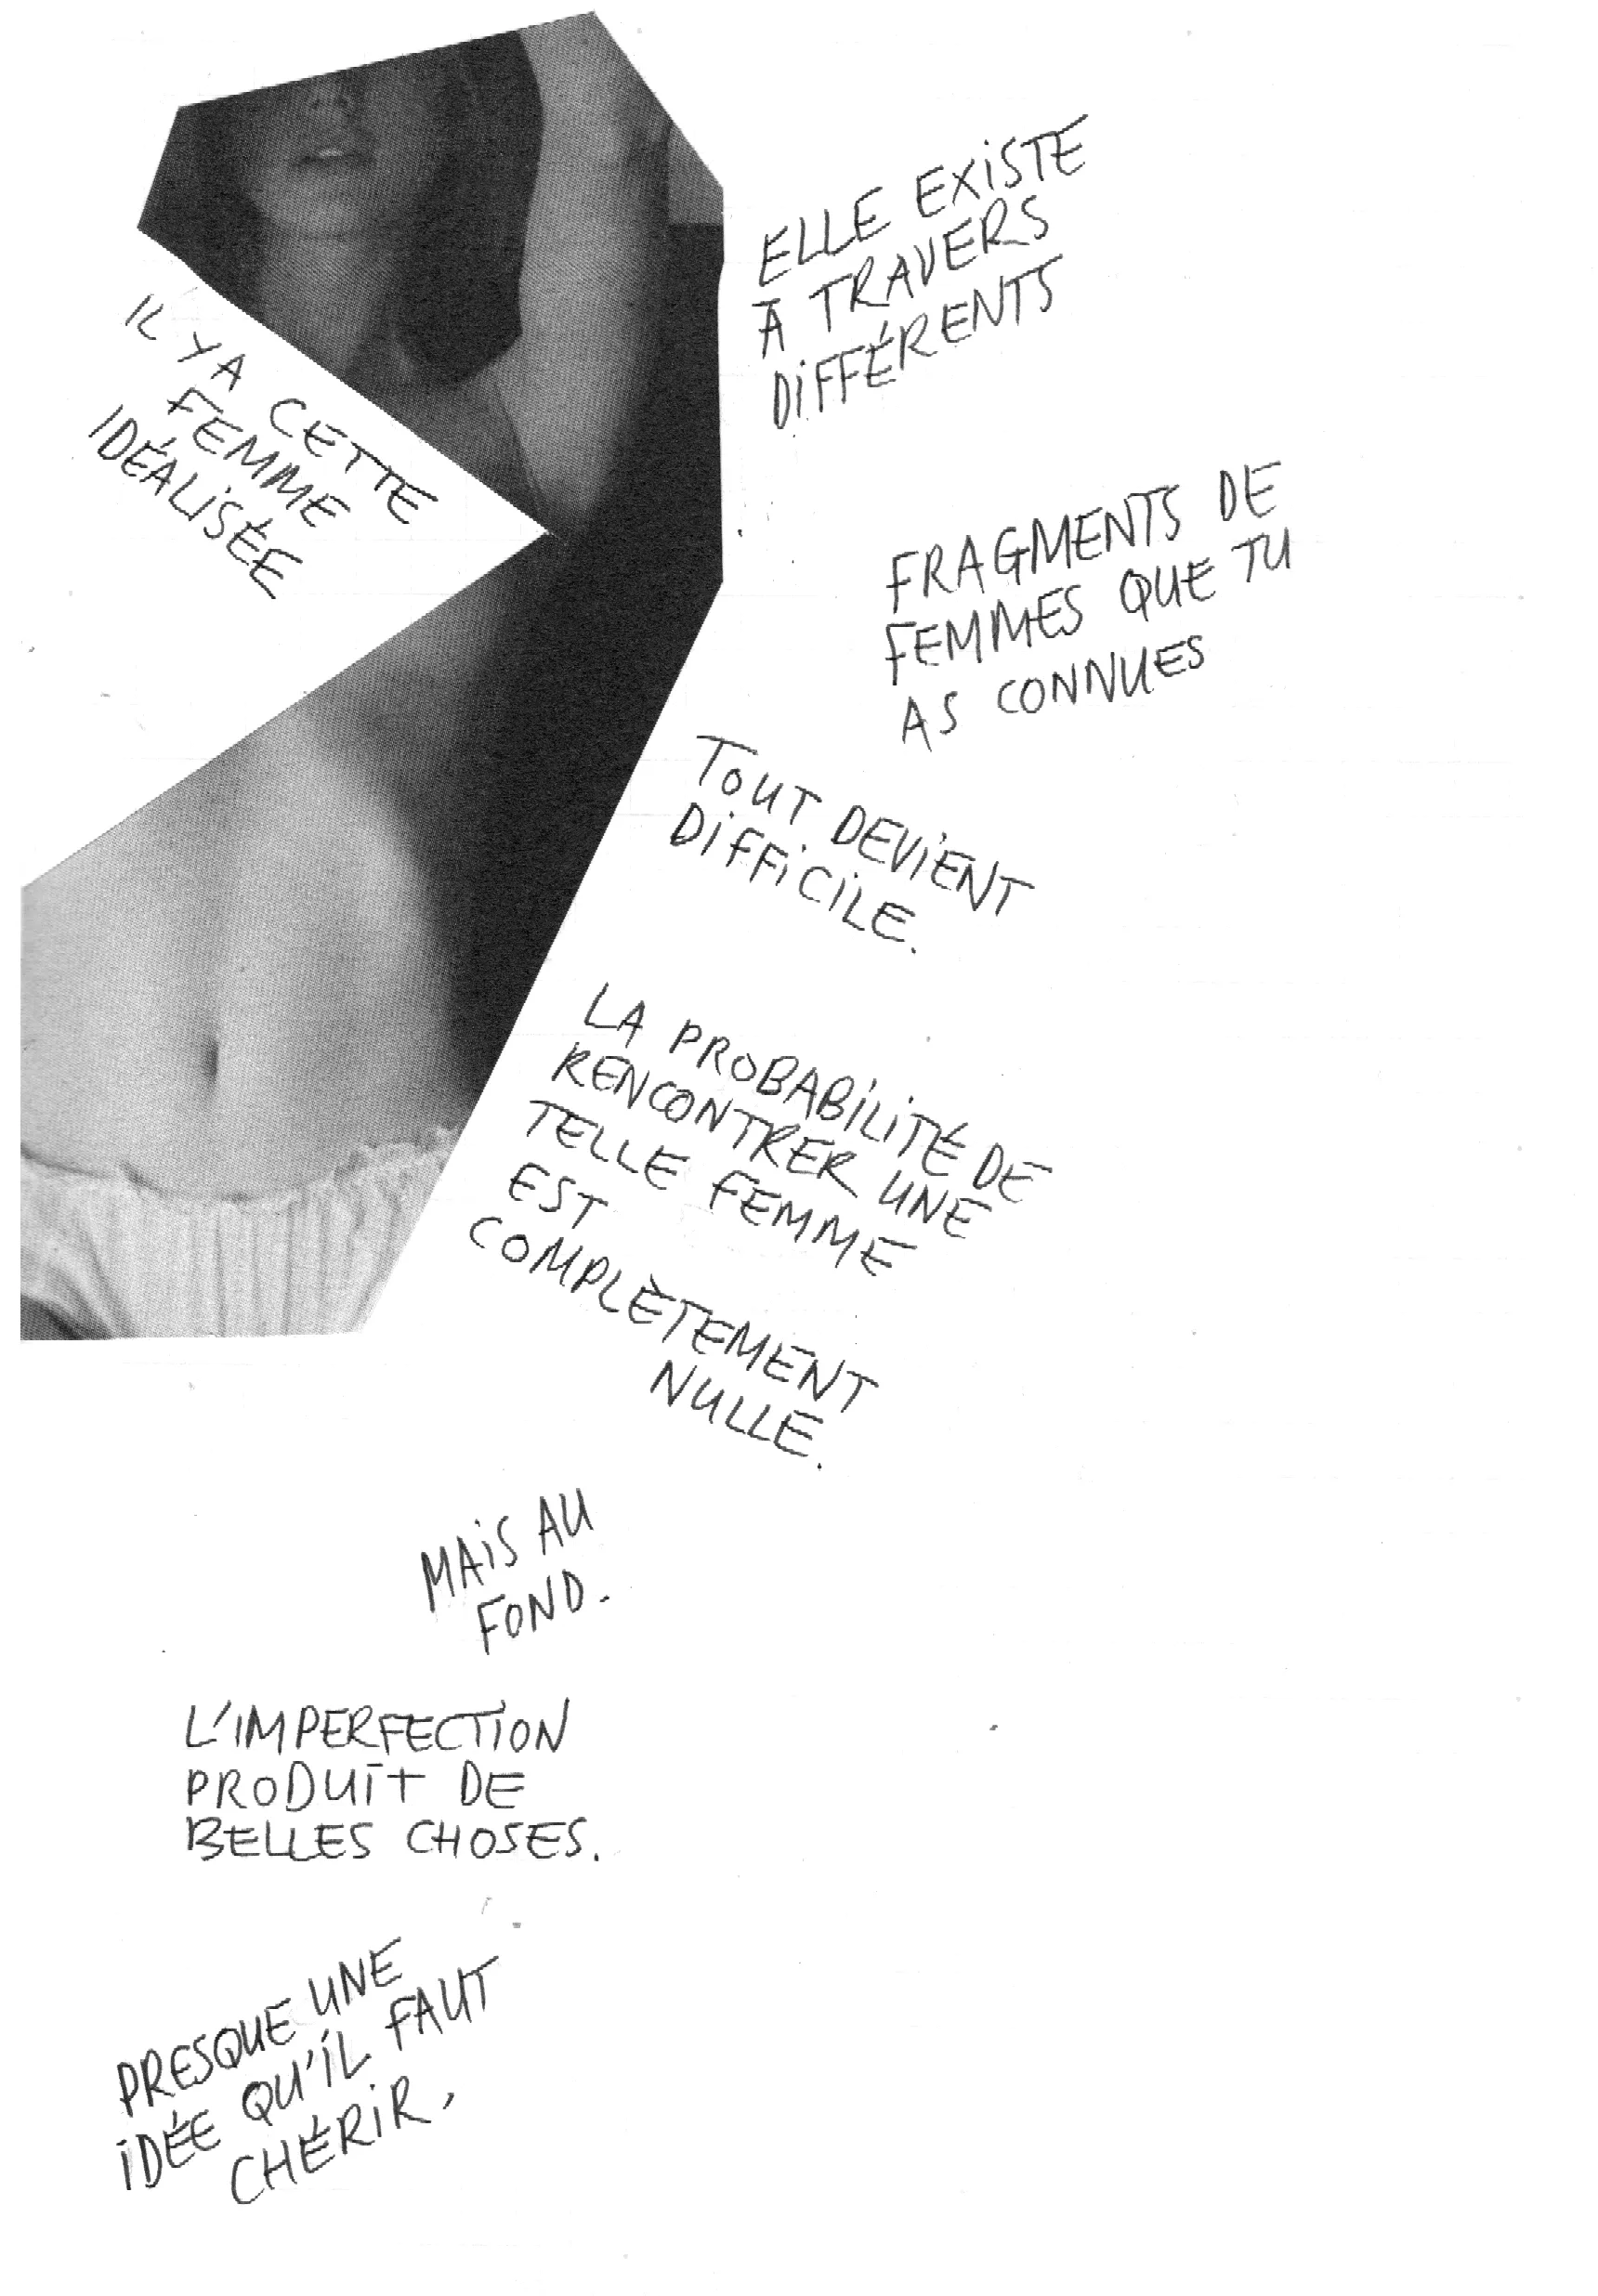 IL Y A CETTE
FEMME
IDÉALISÉE
ELLE EXISTE
À TRAVERS
DIFFÉRENTS
FRAGMENTS DE
FEMMES QUE TU
AS CONNUES
TOUT DEVIENT
DIFFICILE.
LA PROBABILITÉ DE
RENCONTRER UNE
TELLE FEMME
EST
COMPLÈTEMENT
NULLE.
MAIS AU
FOND.
L'IMPERFECTION
PRODUIT DE
BELLES CHOSES.
PRESQUE UNE
IDÉE QU'IL FAUT
CHÉRIR,